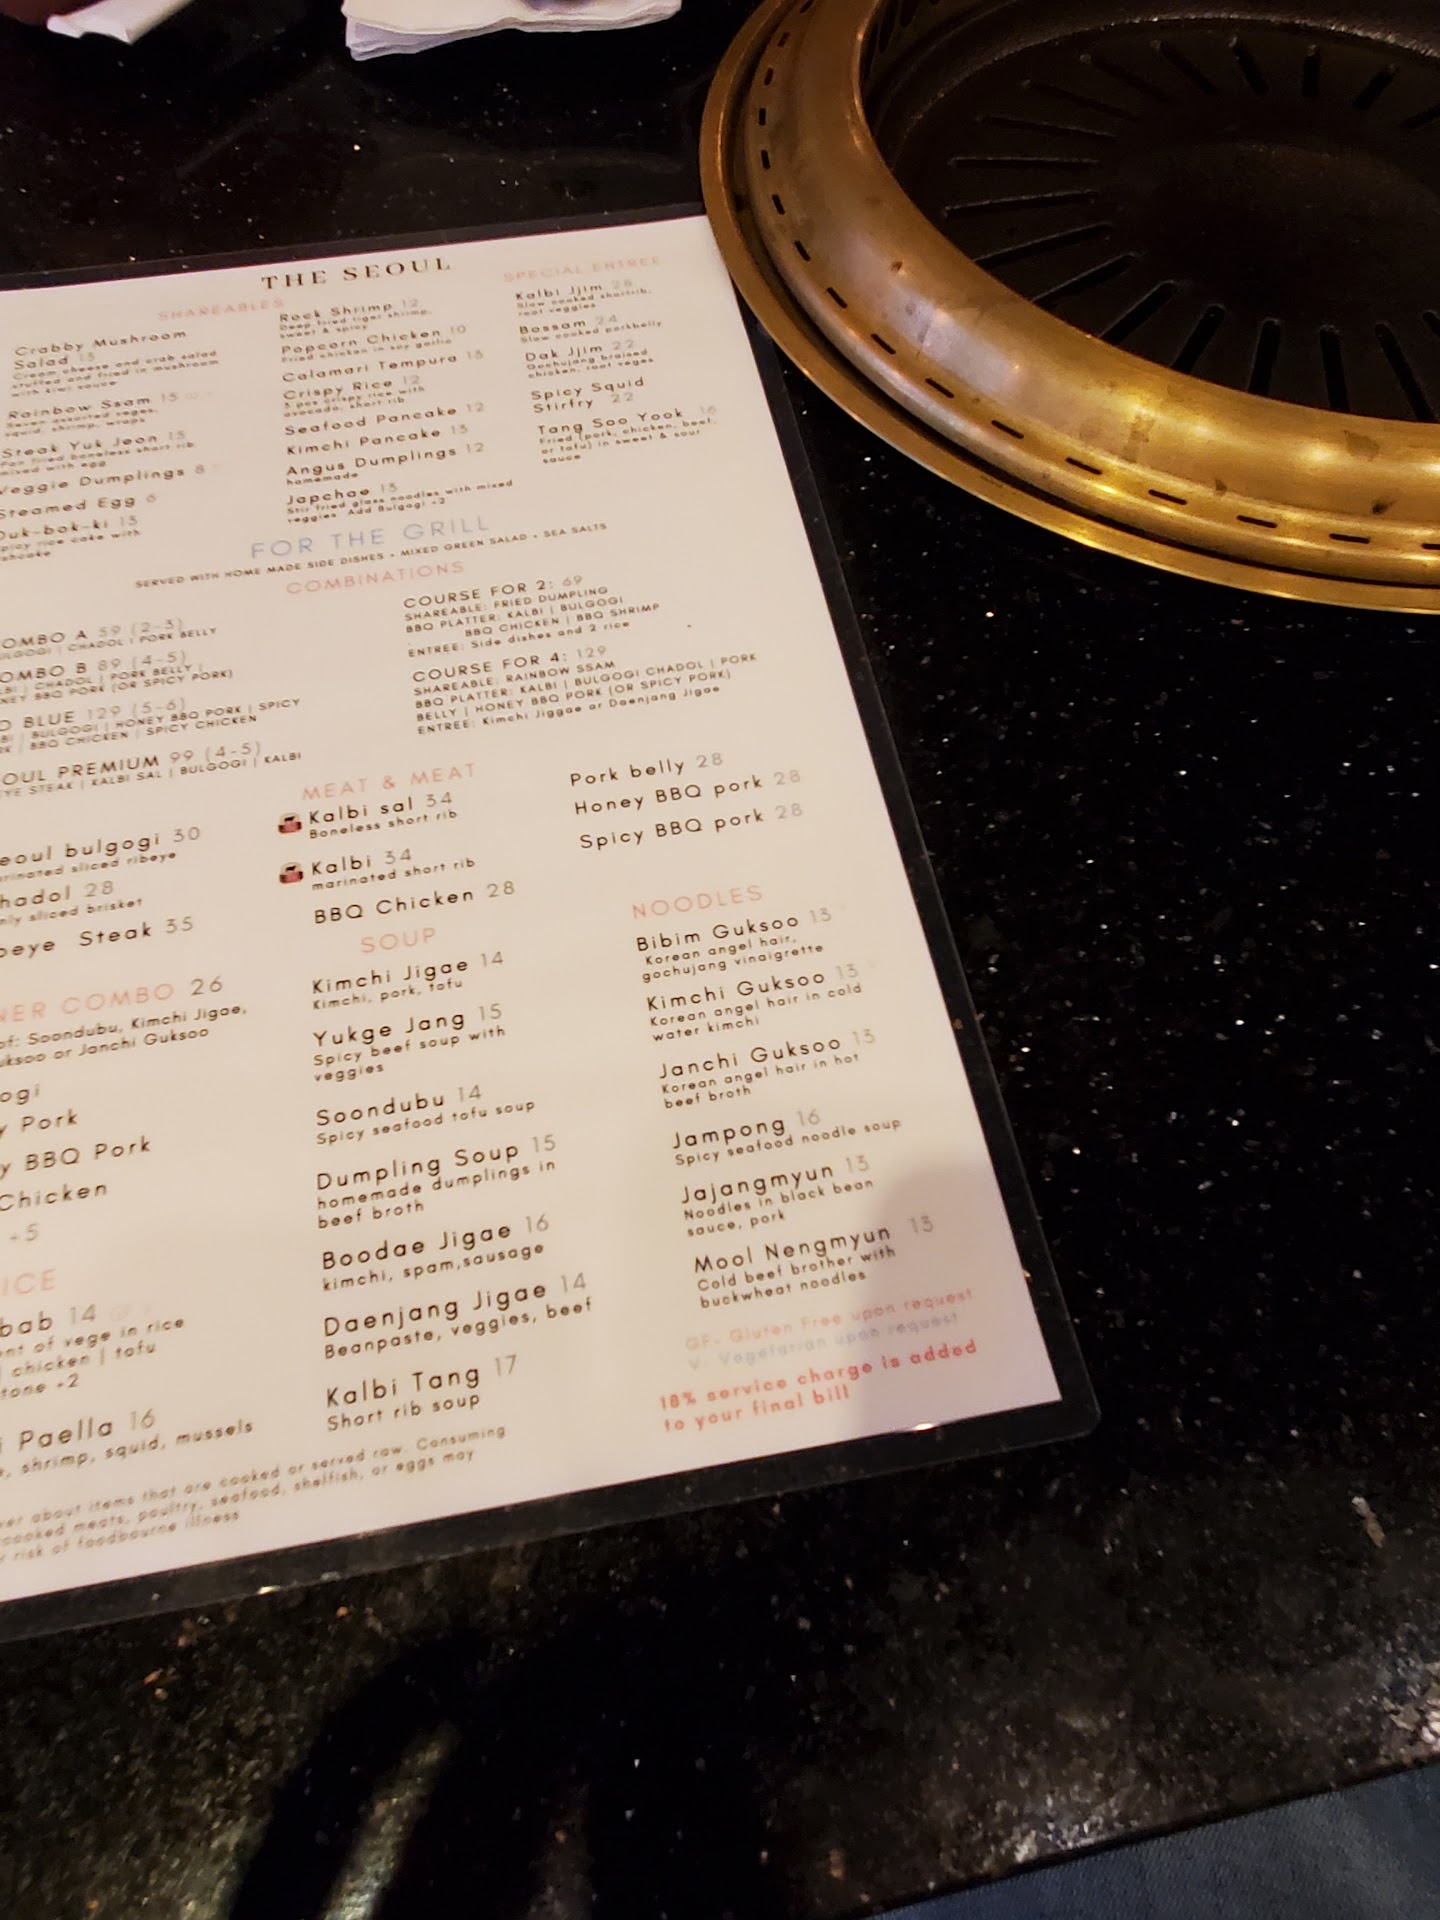 THE SEOUL
SHAREABLES
Crabby Mushroom
Salad 13
Cream cheese and crab salad
stuffed and fried in mushroom
with kiwi sauce
Rainbow Ssam 15
Seven assorted veges,
squid, shrimp, wraps
Steak Yuk Jeon 15
Pan fried boneless short rib
mixed with egg
Veggie Dumplings 8
Steamed Egg 6
Duk-bok-ki 13
spicy rice cake with
Rock Shrimp 12
Deep fried tiger shrimp,
sweet & spicy
Popcorn Chicken 10
Fried chicken in soy garlic
Calamari Tempura 13
Crispy Rice 12
3 pcs crispy rice with
avocado, short rib
Seafood Pancake 12
Kimchi Pancake 13
Angus Dumplings 12
homemade
Japchae 13
Stir fried glass noodles with mixed
veggies. Add Bulgogi +2
SPECIAL ENTREE
Kalbi Jjim 28
Slow cooked shortrib,
root veggies
Bossam 24
Slow cooked porkbelly
Dak Jjim 22
Gochujang braised
chicken, root veges
Spicy Squid
Stirfry 22
Tang Soo Yook 16
Fried (pork, chicken, beef,
or tofu) in sweet & sour
sauce
FOR THE GRILL
SERVED WITH HOME MADE SIDE DISHES • MIXED GREEN SALAD • SEA SALTS
COMBINATIONS
OMBO A 59 (2-3)
ULGOGI | CHADOL | PORK BELLY
OMBO B 89 (4-5)
LBI | CHADOL | PORK BELLY |
NEY BBQ PORK (OR SPICY PORK)
D BLUE 129 (5-6)
BI | BULGOGI | HONEY BBQ PORK | SPICY
RK | BBQ CHICKEN | SPICY CHICKEN
OUL PREMIUM 99 (4-5)
YE STEAK | KALBI SAL | BULGOGI | KALBI
COURSE FOR 2: 69
SHAREABLE: FRIED DUMPLING
BBQ PLATTER: KALBI | BULGOGI
BBQ CHICKEN | BBQ SHRIMP
ENTREE: Side dishes and 2 rice
COURSE FOR 4: 129
SHAREABLE: RAINBOW SSAM
BBQ PLATTER: KALBI | BULGOGI CHADOL | PORK
BELLY | HONEY BBQ PORK (OR SPICY PORK)
ENTREE: Kimchi Jiggae or Daenjang Jigae
MEAT & MEAT
eoul bulgogi 30
arinated sliced ribeye
hadol 28
nly sliced brisket
beye Steak 35
Kalbi sal 34
Boneless short rib
Kalbi 34
marinated short rib
BBQ Chicken 28
Pork belly 28
Honey BBQ pork 28
Spicy BBQ pork 28
NER COMBO 26
of: Soondubu, Kimchi Jigae,
uksoo or Janchi Guksoo
ogi
y Pork
y BBQ Pork
Chicken
+5
ICE
bab 14
nt of vege in rice
| chicken | tofu
tone +2
i Paella 16
, shrimp, squid, mussels
SOUP
Kimchi Jigae 14
Kimchi, pork, tofu
Yukge Jang 15
Spicy beef soup with
veggies
Soondubu 14
Spicy seafood tofu soup
Dumpling Soup 15
homemade dumplings in
beef broth
Boodae Jigae 16
kimchi, spam,sausage
Daenjang Jigae 14
Beanpaste, veggies, beef
Kalbi Tang 17
Short rib soup
NOODLES
Bibim Guksoo 13
Korean angel hair,
gochujang vinaigrette
Kimchi Guksoo 13
Korean angel hair in cold
water kimchi
Janchi Guksoo 13
Korean angel hair in hot
beef broth
Jampong 16
Spicy seafood noodle soup
Jajangmyun 13
Noodles in black bean
sauce, pork
Mool Nengmyun 13
Cold beef brother with
buckwheat noodles
GF- Gluten Free upon request
V- Vegetarian upon request
18% service charge is added
to your final bill
ver about items that are cooked or served raw. Consuming
cooked meats, poultry, seafood, shelfish, or eggs may
risk of foodbourne illness